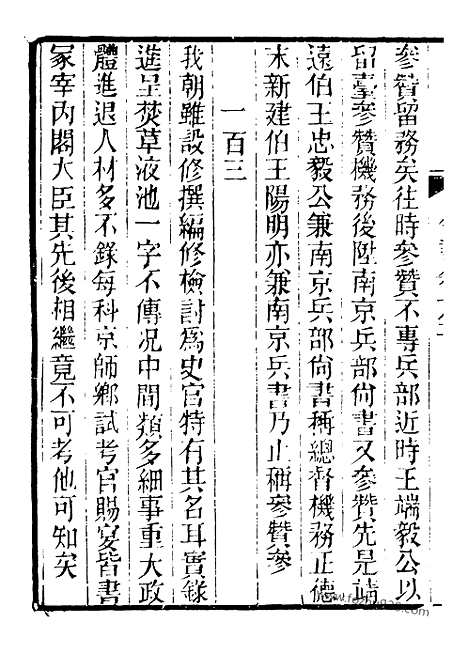 參贊留務矣往時參贊不專兵部近時王端毅公以
留臺參贊機務後陞南京兵部尙書又參贊先是靖
遠伯王忠毅公兼南京兵部尙書稱總督機務正德
末新建伯王陽明亦兼南京兵書乃止稱參贊叅
一百三
我朝雖設修撰編修檢討爲史官特有其名耳實錄
進呈焚草液池一字不傳况中間類多細事重大政
體進退人材多不錄每科京師鄕試考官賜宴皆書
冢宰內閣大臣其先後相繼竟不可考他可知矣